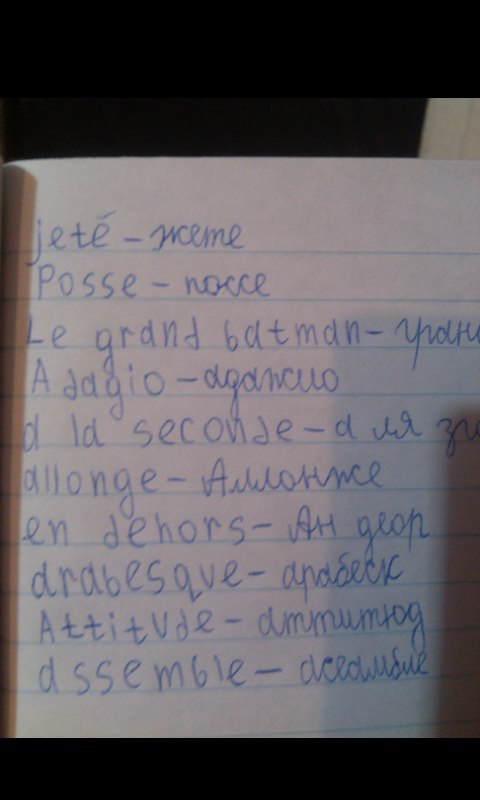 jeté - жете
Posse - поссе
Le grand batman - гран
Adagio - адажио
a la seconde - а ля
allonge - Аллонже
en dehors - Ан деор
arabesque - арабеск
Attitude - аттитюд
assemble - ассамбле